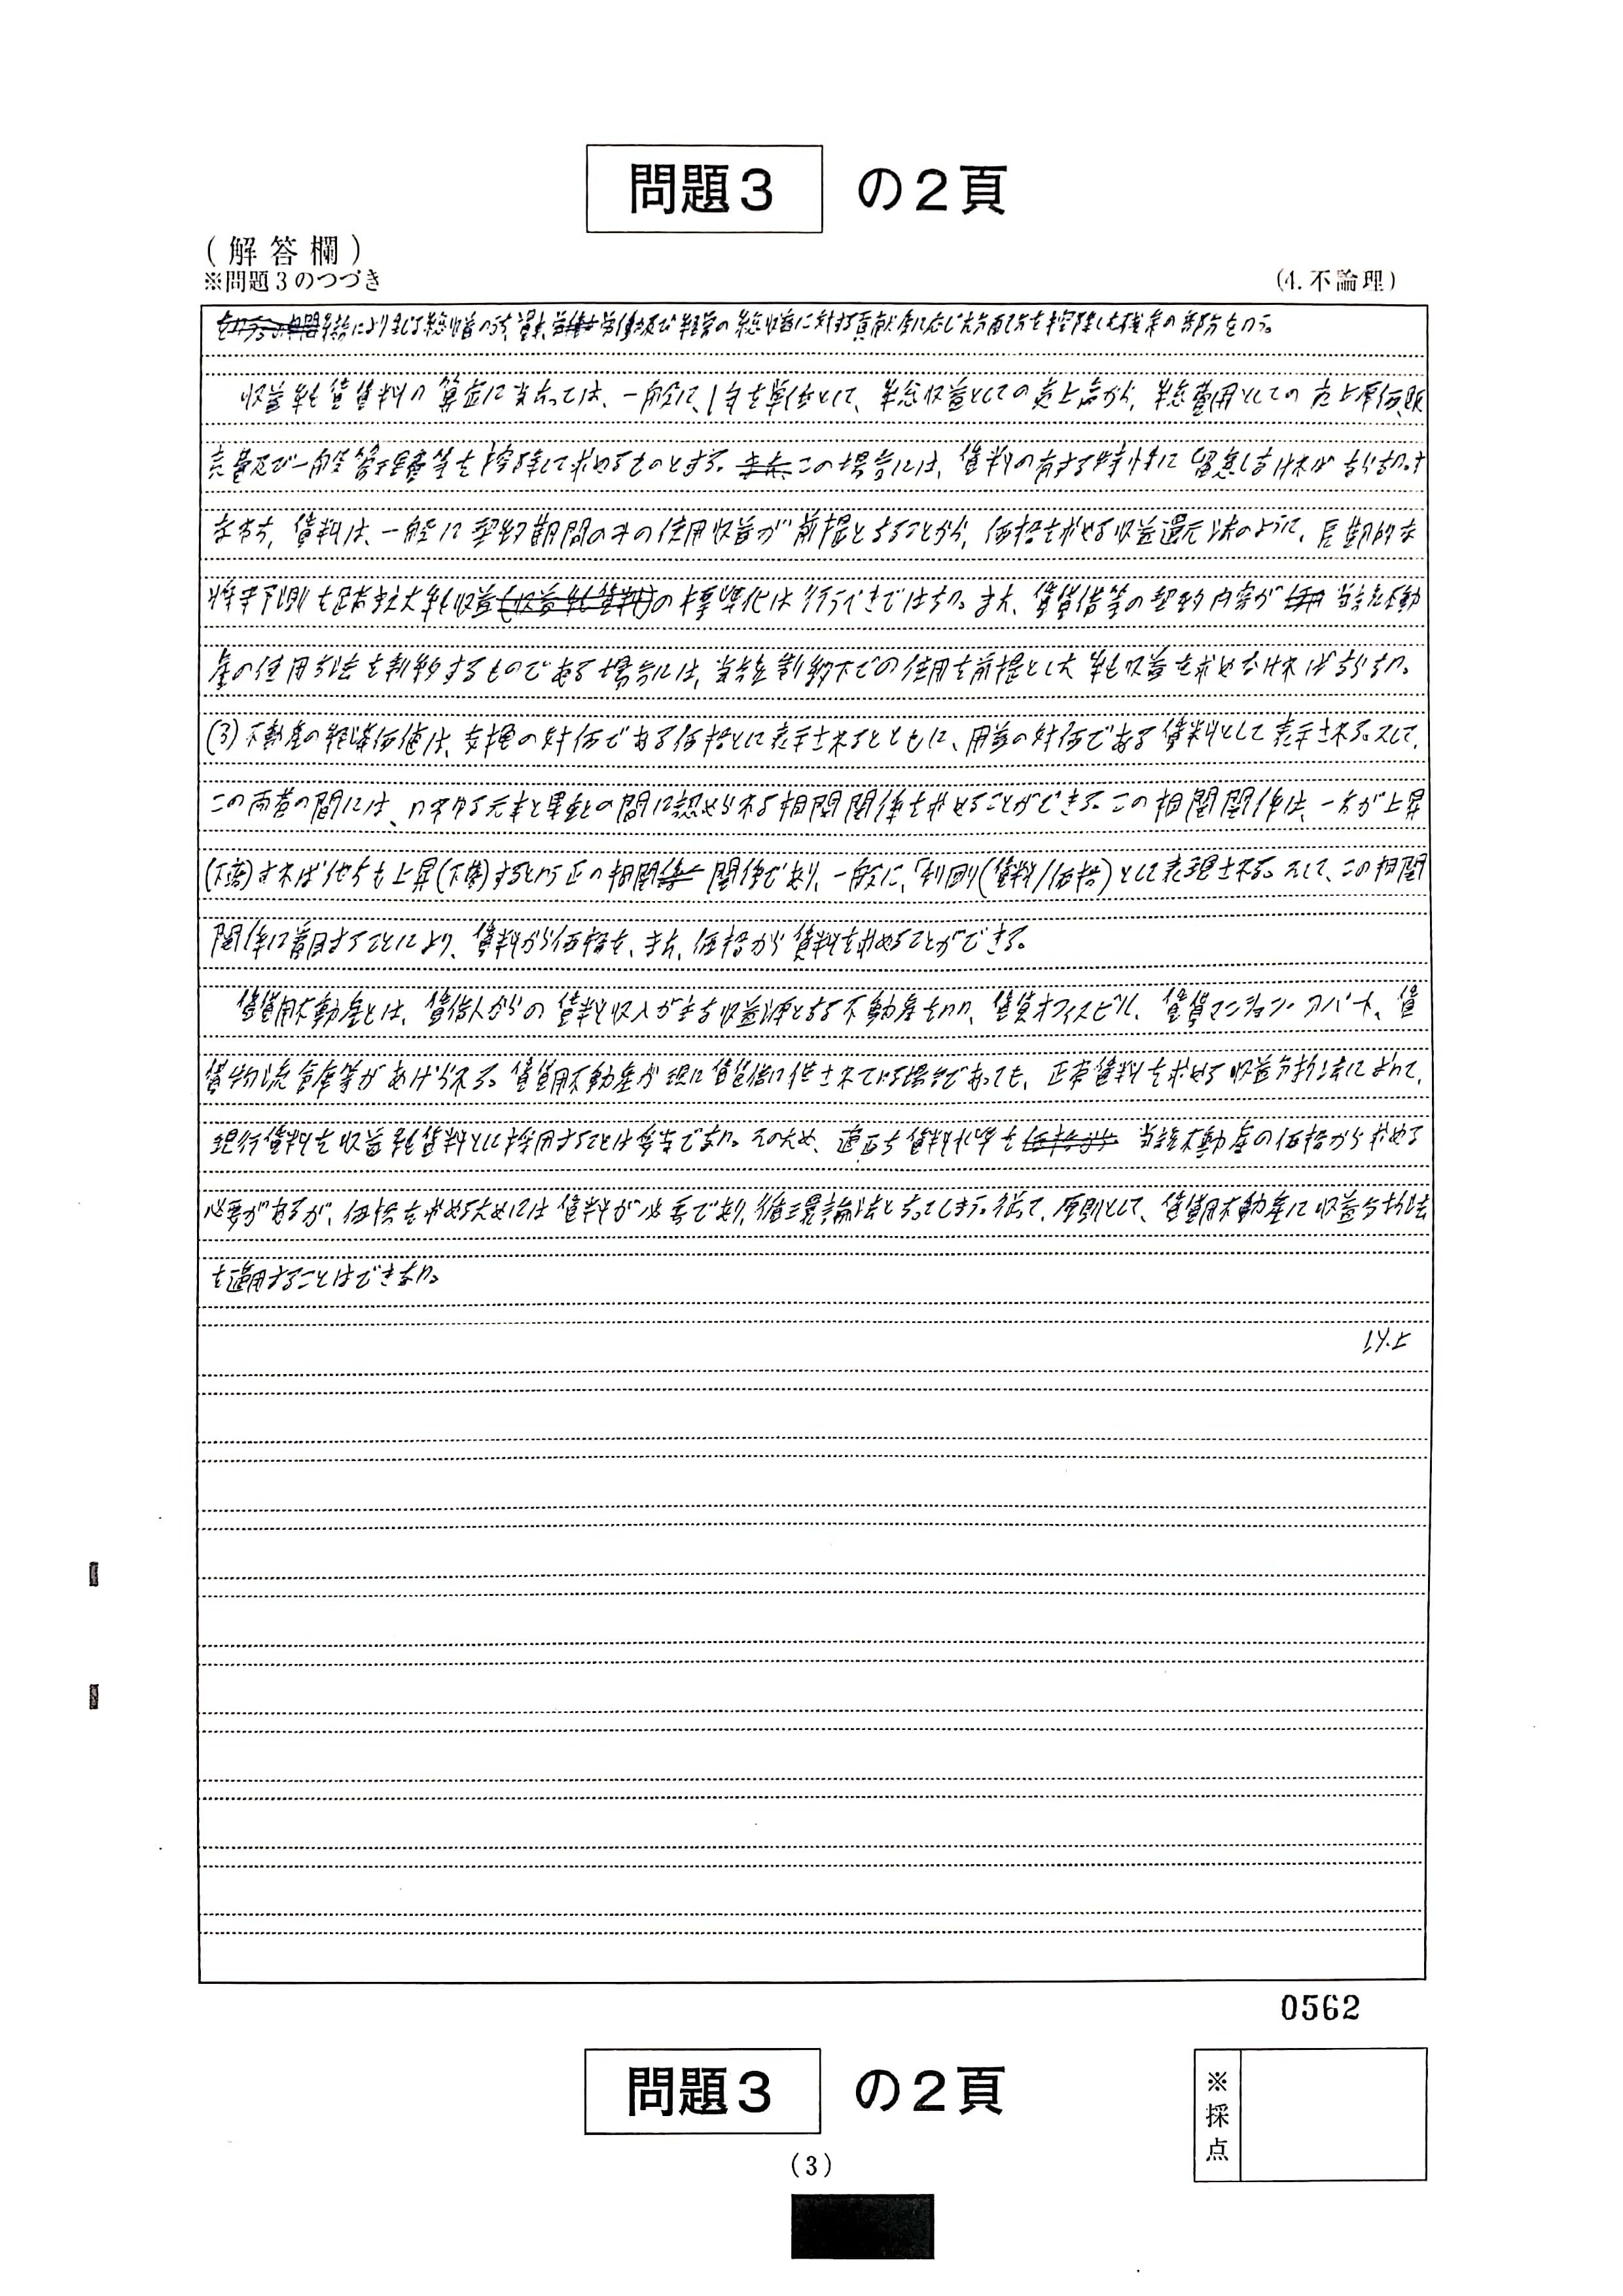 問題3 の2頁
(解答欄)
※問題3のつづき
(4.不論理)
により生じる総収益のうち、資本、労働及び経営の総収益に対する貢献度に応じた分配分を控除した残余の部分をいう。
収益純賃料の算定に当たっては、一般に、1年を単位として、純総収益としての売上高から、純総費用としての売上原価、販
売費及び一般管理費等を控除して求めるものとする。この場合には、賃料の有する特性に留意しなければならない。す
なわち、賃料は、一般に契約期間のその使用収益が前提となることから、価格を求める収益還元法のように、長期的な
将来予測も踏まえた純収益の標準化は行うべきではない。また、賃貸借等の契約内容が当該不動
産の使用方法を制約するものである場合には、当該制約下での使用を前提とした純収益を求めなければならない。
(3)不動産の経済価値は、交換の対価である価格として表示されるとともに、用益の対価である賃料として表示される。そして、
この両者の間には、いわゆる元本と果実との間に認められる相関関係を求めることができる。この相関関係は、一方が上昇
(下落)すれば他方も上昇(下落)するという正の相関関係であり、一般に、利回り(賃料/価格)として表現される。そして、この相関
関係に着目することにより、賃料から価格を、また、価格から賃料を求めることができる。
賃貸用不動産とは、賃借人からの賃料収入が主な収益源となる不動産をいい、賃貸オフィスビル、賃貸マンション・アパート、賃
貸物流倉庫等があげられる。賃貸用不動産が現に賃貸借に供されている場合であっても、正常賃料を求める収益分析法において、
現行賃料を収益純賃料に採用することは妥当でない。そのため、適正な賃料を当該不動産の価格から求める
必要があるが、価格を求めるためには賃料が必要であり、循環論法となってしまう。従って、原則として、賃貸用不動産に収益分析法
を適用することはできない。
以上
0562
問題3 の2頁
※採点
(3)